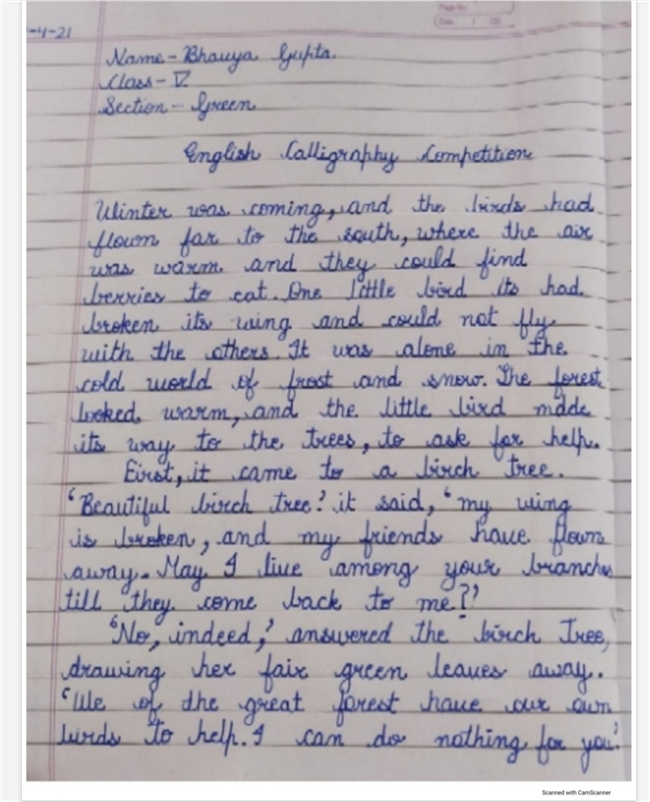 -4-21
Name - Bhavya Gupta
Class - V
Section - Green
English Calligraphy Competition
Winter was coming, and the birds had
flown far to the south, where the air
was warm and they could find
berries to eat. One little bird its had
broken its wing and could not fly
with the others. It was alone in the
cold world of frost and snow. The forest
looked warm, and the little bird made
its way to the trees, to ask for help.
First, it came to a birch tree.
'Beautiful birch tree!' it said, 'my wing
is broken, and my friends have flown
away. May I live among your branches
till they come back to me?'
'No, indeed,' answered the birch tree,
drawing her fair green leaves away.
'We of the great forest have our own
birds to help. I can do nothing for you.'
Scanned with CamScanner